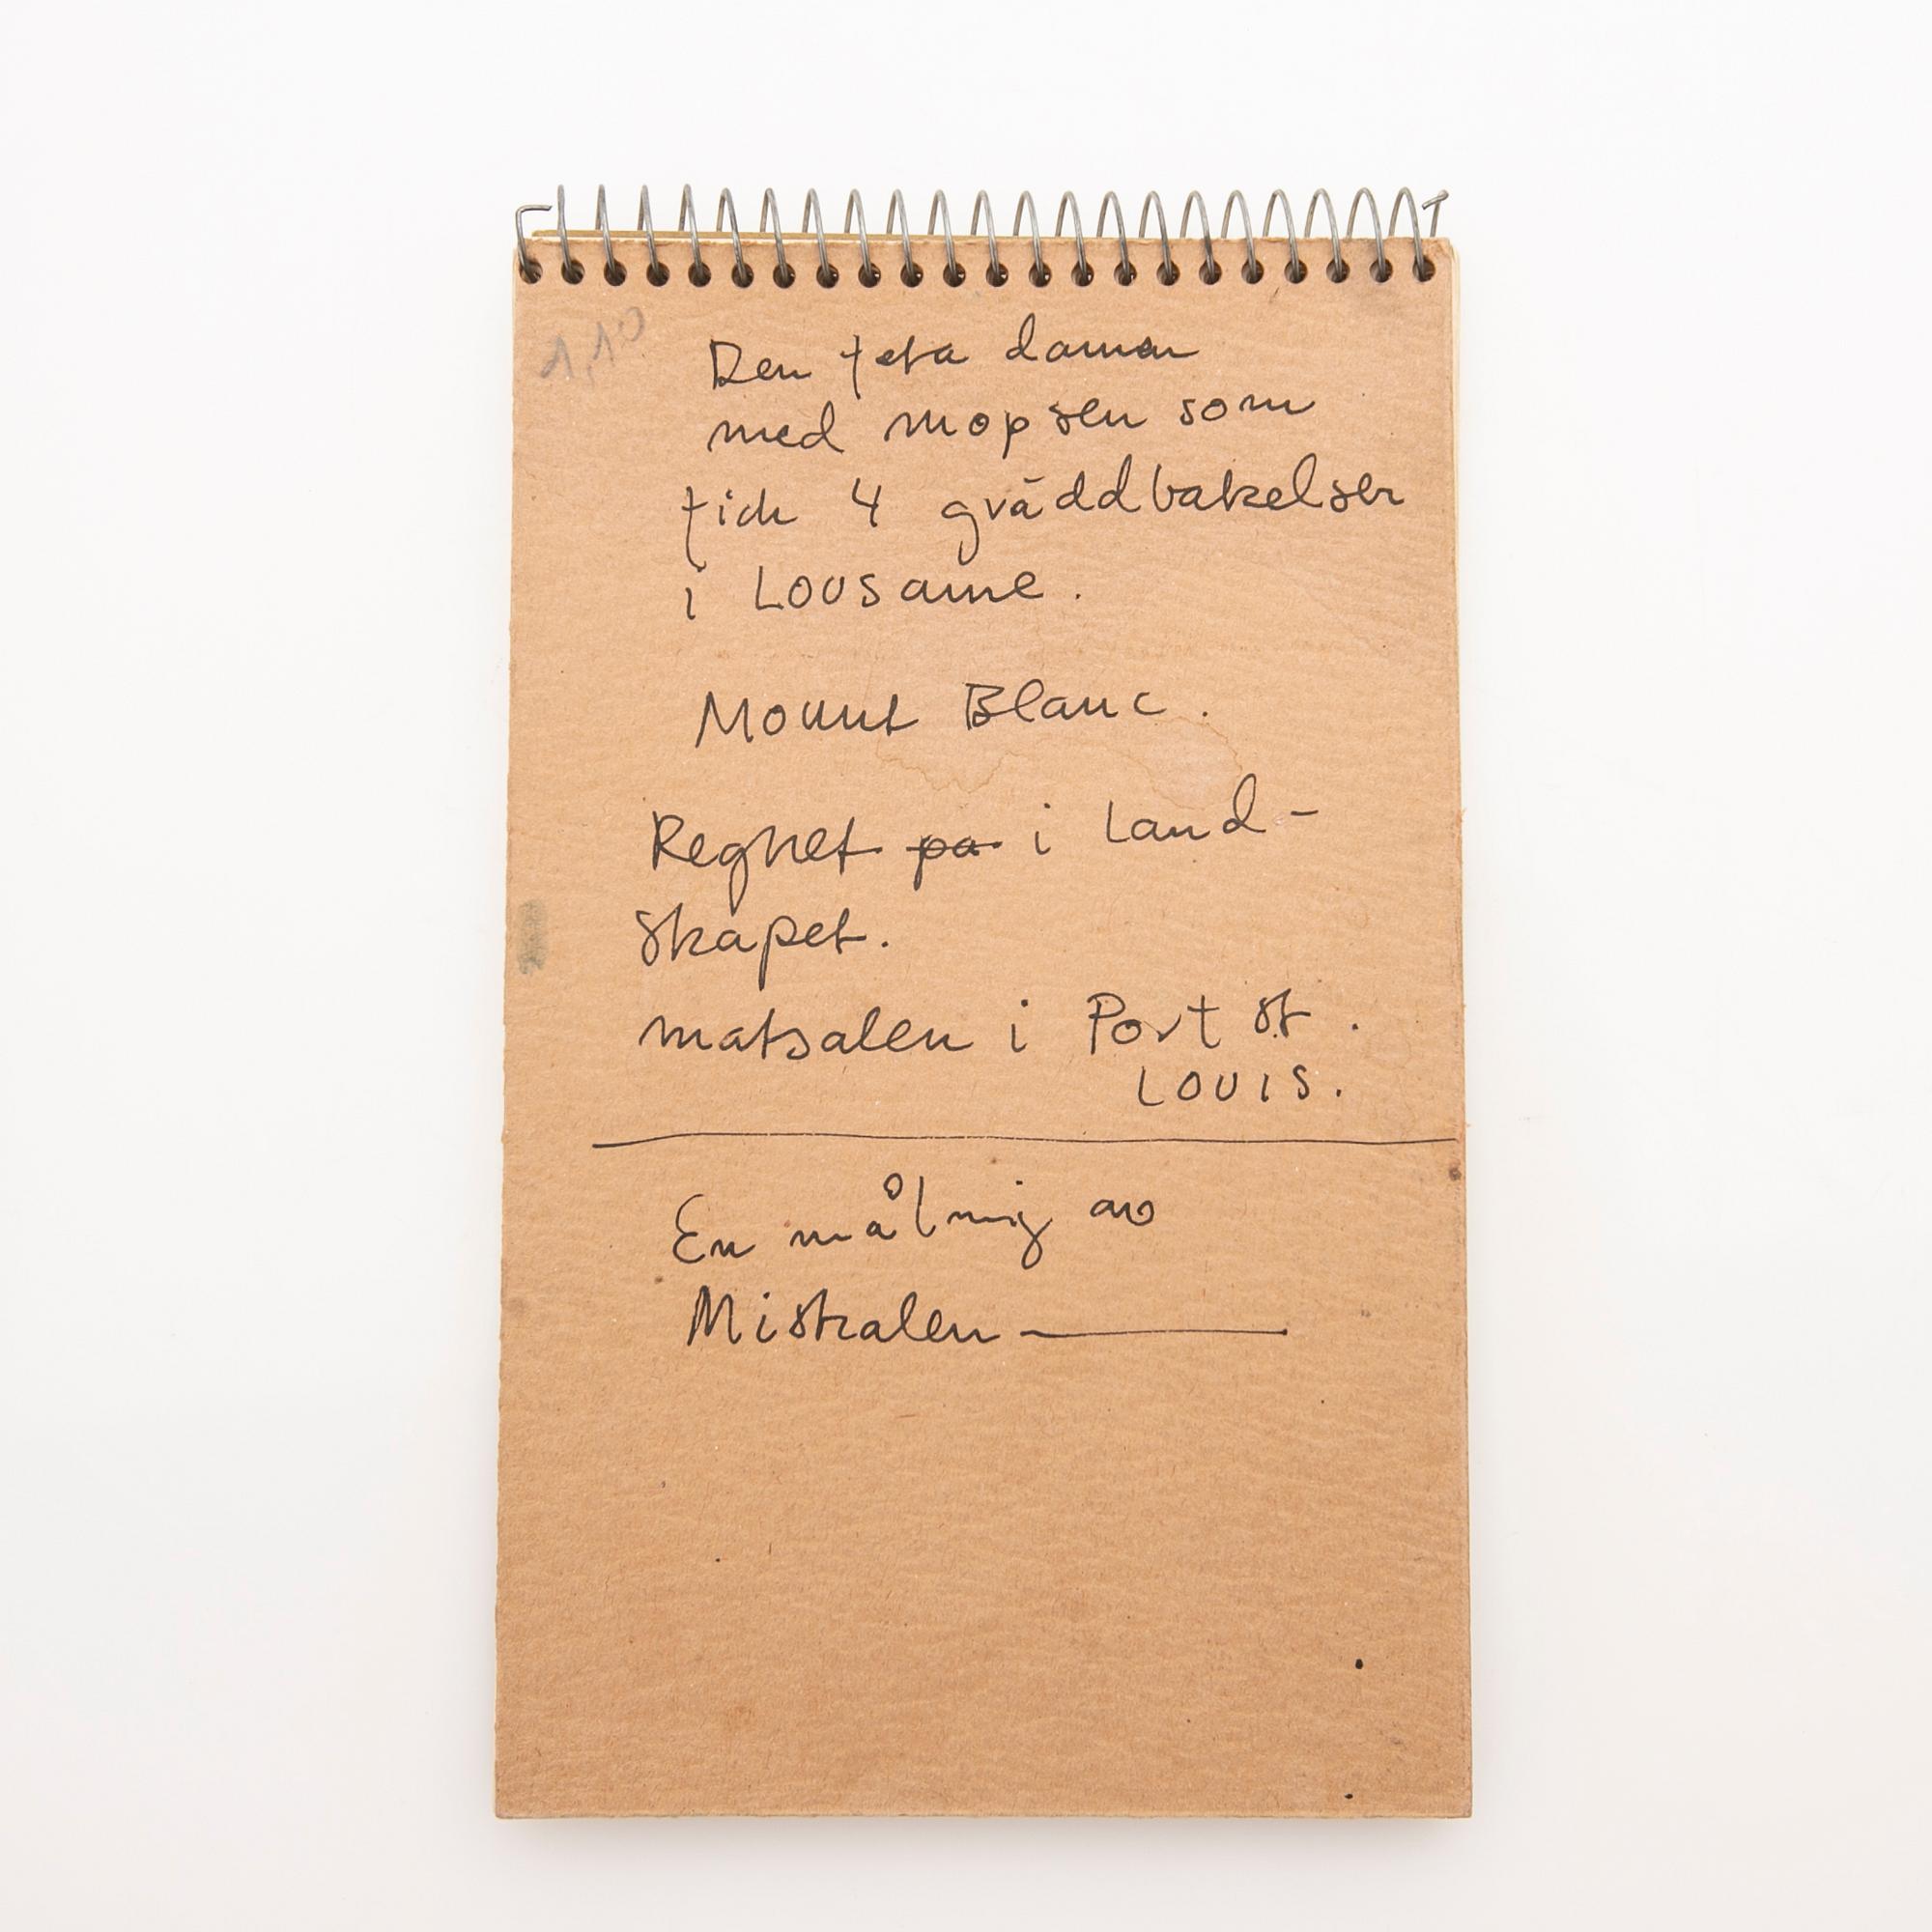 1,10
Den feta damen
med mopsen som
fick 4 gräddbakelser
i Lousanne.
Mount Blanc.
Regnet på i Land-
skapet.
matsalen i Port St.
LOUIS.
En målning av
Mistralen